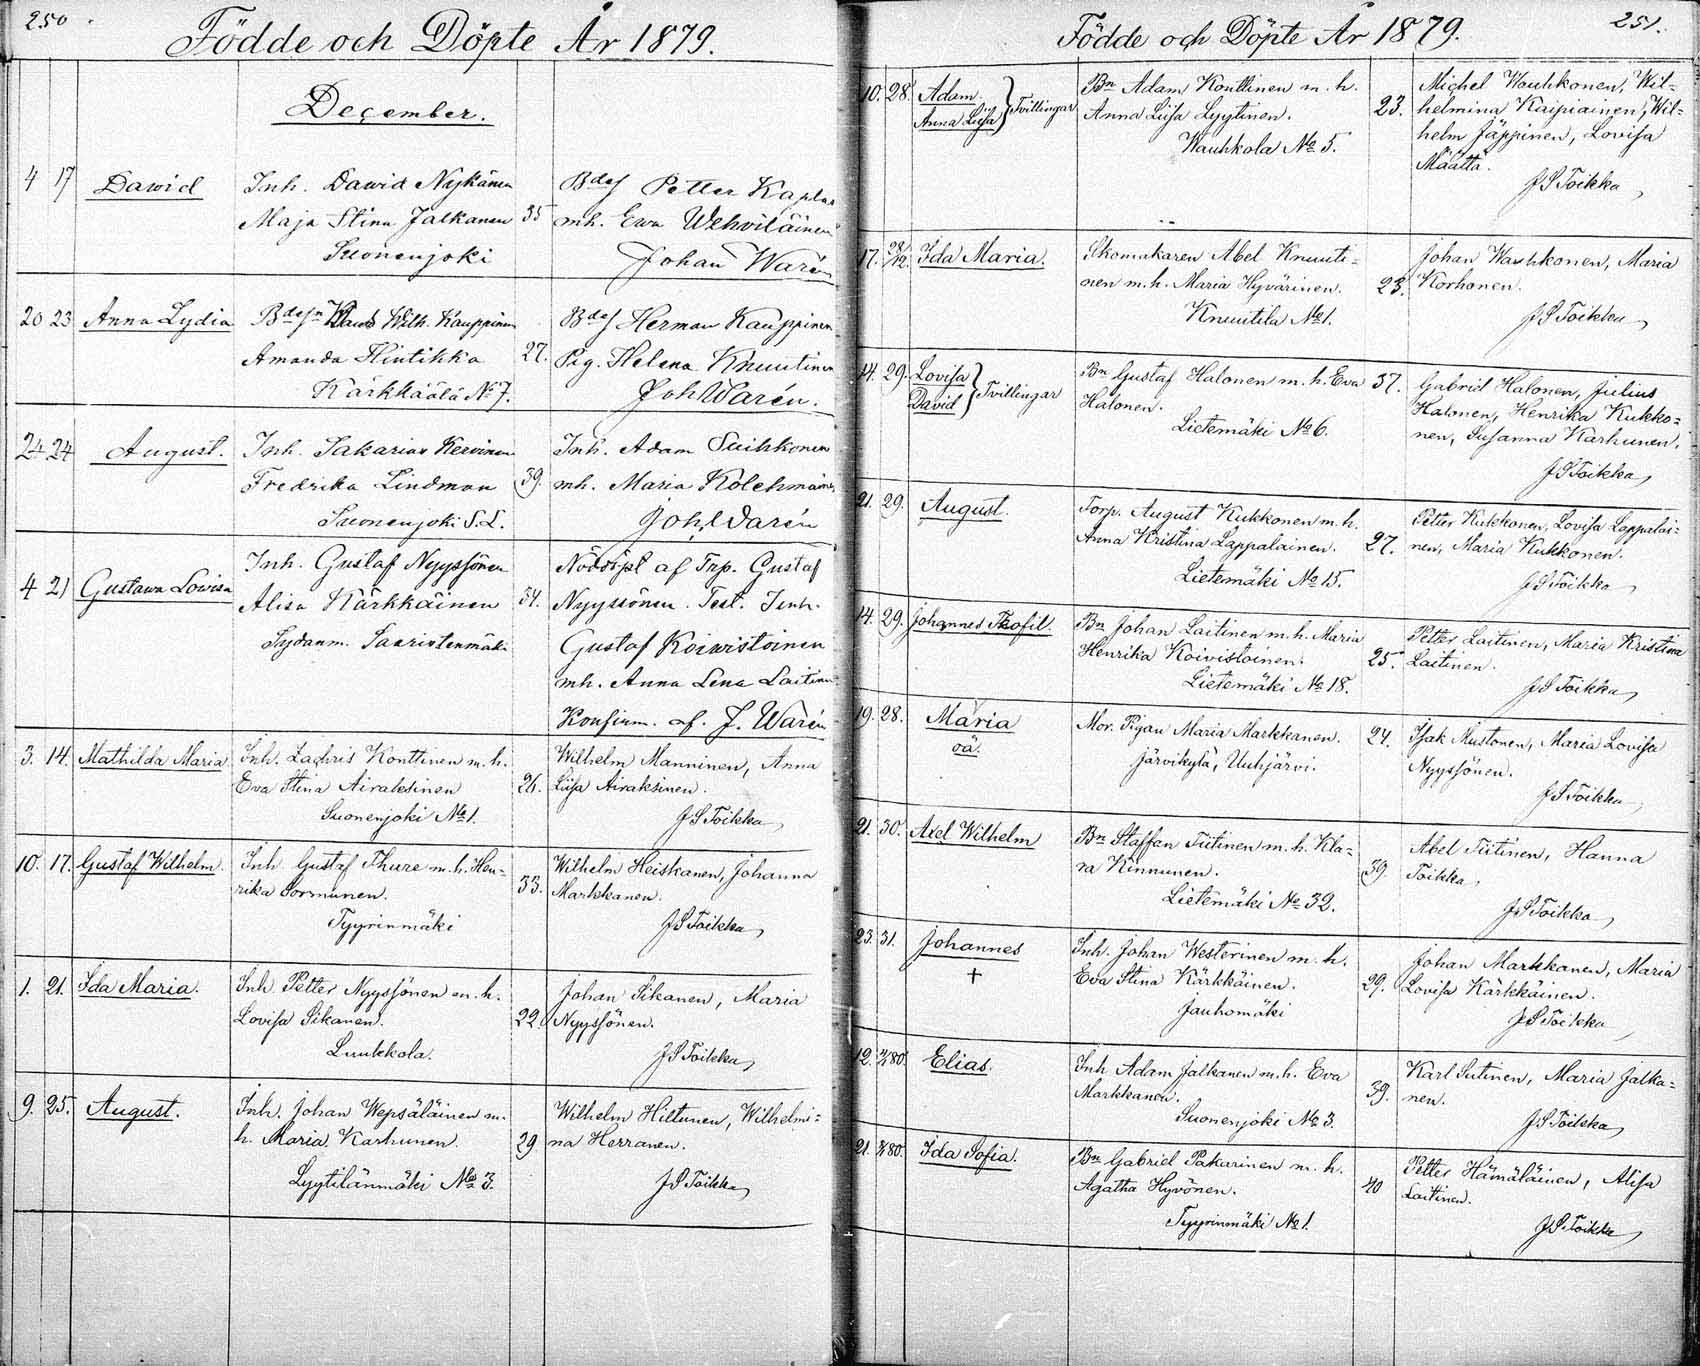 250
Födde och Döpte År 1879.
December.
4 17 Dawid
Inh. Dawid Nykänen
Maja Stina Jalkanen 35
Suonenjoki
Bdes Petter Kaplas
mh. Ewa Wehviläinen
Johan Warén
20 23 Anna Lydia
Wilh. Kauppinen
Amanda Hintikka 27.
Kärkkäälä No 7.
Bdes Herman Kauppinen
Pig. Helena Knuutinen
Joh Warén.
24 24 August.
Inh. Sakarias Kervinen
Fredrika Lindman 39.
Suonenjoki S.L.
Inh. Adam Suihkonen
mh. Maria Kolehmainen
Joh. Warén
4 21 Gustawa Lowisa
Inh. Gustaf Nyyssönen
Alisa Kärkkäinen 34.
Sydänm. Saaristenmäki
Nöddöpt af Trp. Gustaf
Nyyssönen. Test. Inh.
Gustaf Koiwistoinen
mh. Anna Lena Laitinen
Konfirm. af. J. Warén
3. 14. Mathilda Maria
Inh. Zachris Konttinen m. h.
Eva Stina Airaksinen 26.
Suonenjoki No 1.
Wilhelm Manninen, Anna
Liisa Airaksinen.
J S Toikka
10. 17. Gustaf Wilhelm.
Inh Gustaf Thure m. h. Hen-
rika Sormunen. 33.
Tyyrinmäki
Wilhelm Heiskanen, Johanna
Markkanen.
J S Toikka
1. 21. Ida Maria.
Inh Petter Nyyssönen m. h.
Lovisa Sikanen. 22.
Luukkola.
Johan Sikanen, Maria
Nyyssönen.
J S Toikka
9. 25. August.
Inh. Johan Wepsäläinen m.
h. Maria Karhunen. 29
Lyytilänmäki No 3.
Wilhelm Hiltunen, Wilhelmi-
na Herranen.
J S Toikka
251.
Födde och Döpte År 1879.
10. 28. Adam.
Anna Liisa } Tvillingar
Bn Adam Konttinen m. h.
Anna Liisa Lyytinen. 23.
Wauhkola No 5.
Michel Wauhkonen, Wil-
helmina Kaipiainen, Wil-
helm Jäppinen, Lovisa
Määttä.
J S Toikka
17. 28/12. Ida Maria.
Skomakaren Abel Knuuti-
nen m. h. Maria Hyvärinen. 23.
Knuutila No 1.
Johan Wauhkonen, Maria
Korhonen.
J S Toikka
14. 29. Lovisa
David } Tvillingar
Bn Gustaf Halonen m. h. Eva 37.
Halonen.
Lietemäki No 6.
Gabriel Halonen, Julius
Halonen, Henrika Kukko-
nen, Susanna Karhunen.
J S Toikka
21. 29. August.
Torp. August Kukkonen m. h.
Anna Kristina Lappalainen. 27.
Lietemäki No 15.
Petter Kukkonen, Lovisa Lappalai-
nen, Maria Kukkonen.
J S Toikka
14. 29. Johannes Teofil.
Bn Johan Laitinen m. h. Maria
Henrika Koivistoinen. 25.
Lietemäki No 18.
Petter Laitinen, Maria Kristina
Laitinen.
J S Toikka
19. 28. Maria
oä.
Mor. Pigan Maria Markkanen. 24.
Järvikylä, Uuhjärvi.
Isak Mustonen, Maria Lovisa
Nyyssönen.
J S Toikka
21. 30. Axel Wilhelm
Bn Staffan Tiitinen m. h. Kla-
ra Kinnunen. 39.
Lietemäki No 32.
Abel Tiitinen, Hanna
Toikka.
J S Toikka
23. 31. Johannes
+
Inh. Johan Westerinen m. h.
Eva Stina Kärkkäinen. 29.
Jauhomäki
Johan Markkanen, Maria
Lovisa Kärkkäinen.
J S Toikka
12. Elias.
Inh Adam Jalkanen m. h. Eva
Markkanen. 39.
Suonenjoki No 3.
Karl Sutinen, Maria Jalka-
nen.
J S Toikka
21. Ida Sofia.
Bn Gabriel Pakarinen m. h.
Agatha Hyvönen. 40
Tyyrinmäki No 1.
Petter Hämäläinen, Alisa
Laitinen.
J S Toikka